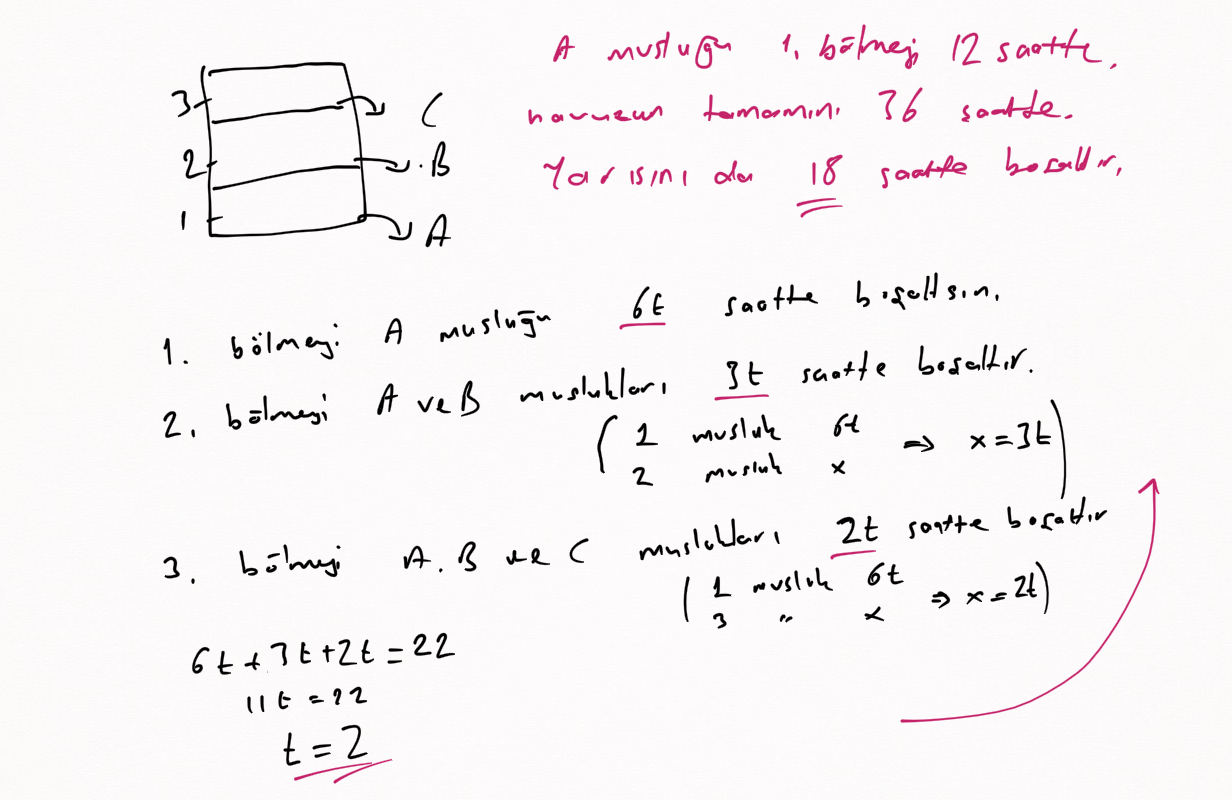 3
2
1
C
B
A
A musluğu 1. bölmeyi 12 saatte.
havuzun tamamını 36 saatte.
Yarısını da 18 saatte boşaltır.
1. bölmeyi A musluğu 6t saatte boşaltsın.
2. bölmeyi A ve B muslukları 3t saatte boşaltır.
( 1 musluk 6t ⇒ x = 3t )
2 musluk x
3. bölmeyi A.B ve C muslukları 2t saatte boşaltır
( 1 musluk 6t ⇒ x = 2t )
3 " x
6t + 3t + 2t = 22
11t = 22
t = 2